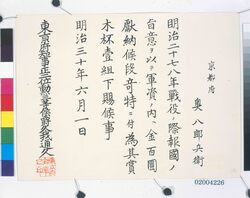 京都府
奥八郎兵衛
明治二十七八年戦役ノ際報國ノ
旨意ヲ以テ軍資ノ内ヘ金百圓
獻納候段奇特ニ付為其賞
木杯壹組下賜候事
明治三十年六月一日
東京府知事正三位勲一等侯爵久我通久
02004226